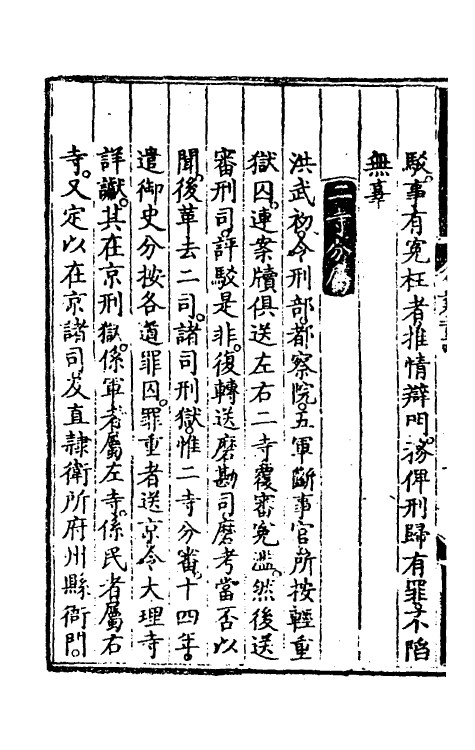 駁。事有冤枉者推情辯明。務俾刑歸有罪。不陷
無辜
二寺分屬
洪武初。令刑部。都察院。五軍斷事官。所按輕重
獄囚。連案牘俱送左右二寺覆審冤濫。然後送
審刑司。評駁是非。復轉送磨勘司磨考當否以
聞。後革去二司。諸司刑獄。惟二寺分審。十四年。
遣御史分按各道罪囚。罪重者送京。令大理寺
詳讞。其在京刑獄。係軍者屬左寺。係民者屬右
寺。又定以在京諸司。及直隸衛所府州縣衙門。